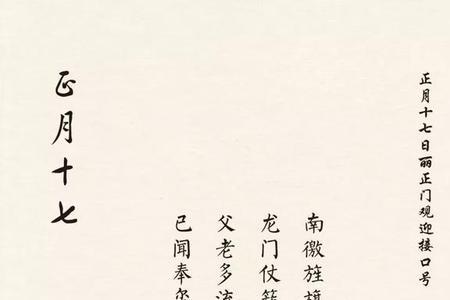 正月十七日丽正门观迎接口号
南徼旌旗
龙门仗
父老多流
已闻奉
正月十七